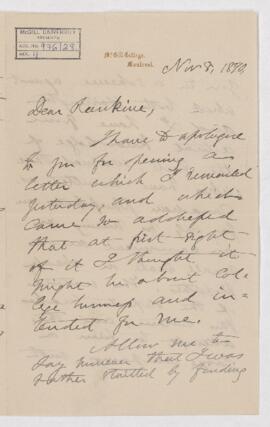 McGILL UNIVERSITY
ARCHIVES
ACC. NO. 976/28
REF. 4
McGill College,
Montreal.
Nov 8, 1890,
Dear Rankine,
I have to apologise
to you for opening a
letter which I remailed
yesterday, and which
came so addressed
that at first sight
of it I thought it
might be about Col-
lege business and in-
tended for me.
Allow me to
say however that I was
rather startled by finding